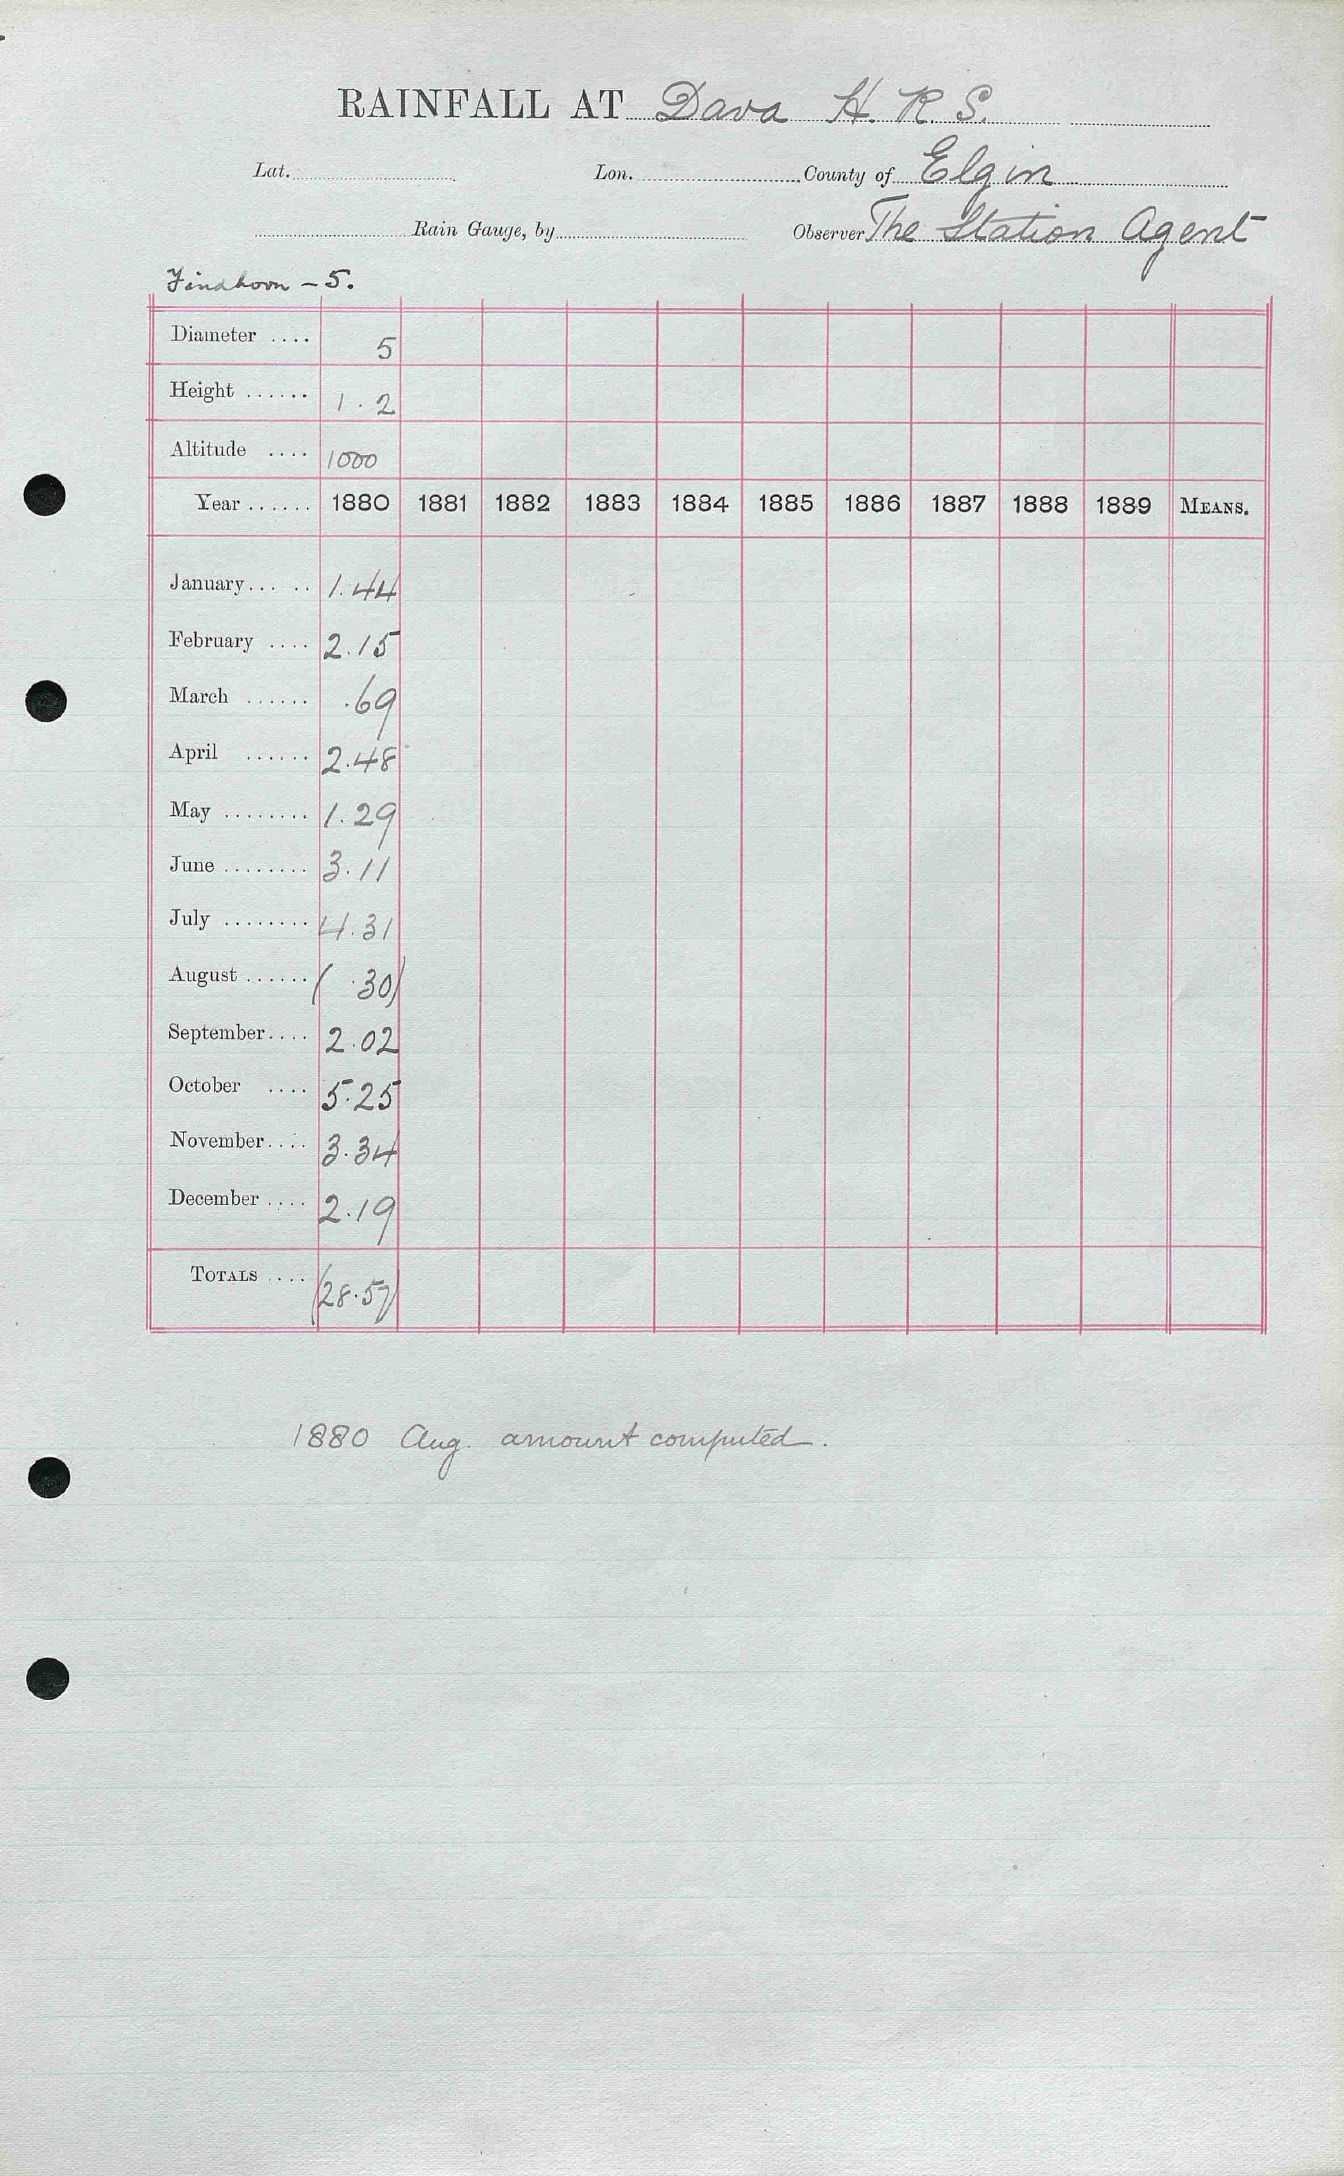 RAINFALL AT Dava H. R. S.
Lat. Lon. County of Elgin
Rain Gauge, by Observer The Station Agent
Findhorn - 5.
Diameter .... 5
Height ...... 1.2
Altitude .... 1000
Year ...... 1880 1881 1882 1883 1884 1885 1886 1887 1888 1889 MEANS.
January ..... 1.44
February .... 2.15
March ...... .69
April ...... 2.48
May ........ 1.29
June ........ 3.11
July ........ 4.31
August ...... ( .30)
September .... 2.02
October .... 5.25
November .... 3.34
December .... 2.19
TOTALS .... (28.57)
1880 Aug. amount computed.